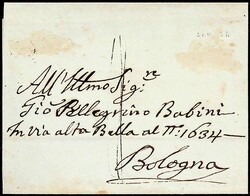 All'Illmo Sigre
Gio Pellegrino Babini
In via alta Bella al No: 1634—
Bologna